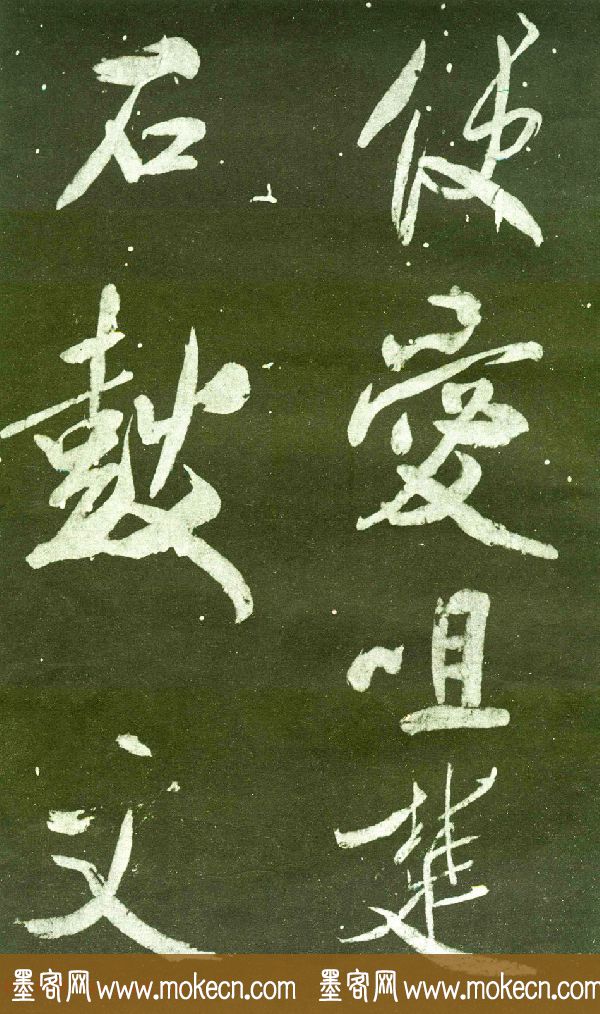 便愛咀楚
石鼓文
墨客网 www.mokecn.com 墨客网 www.mokecn.com